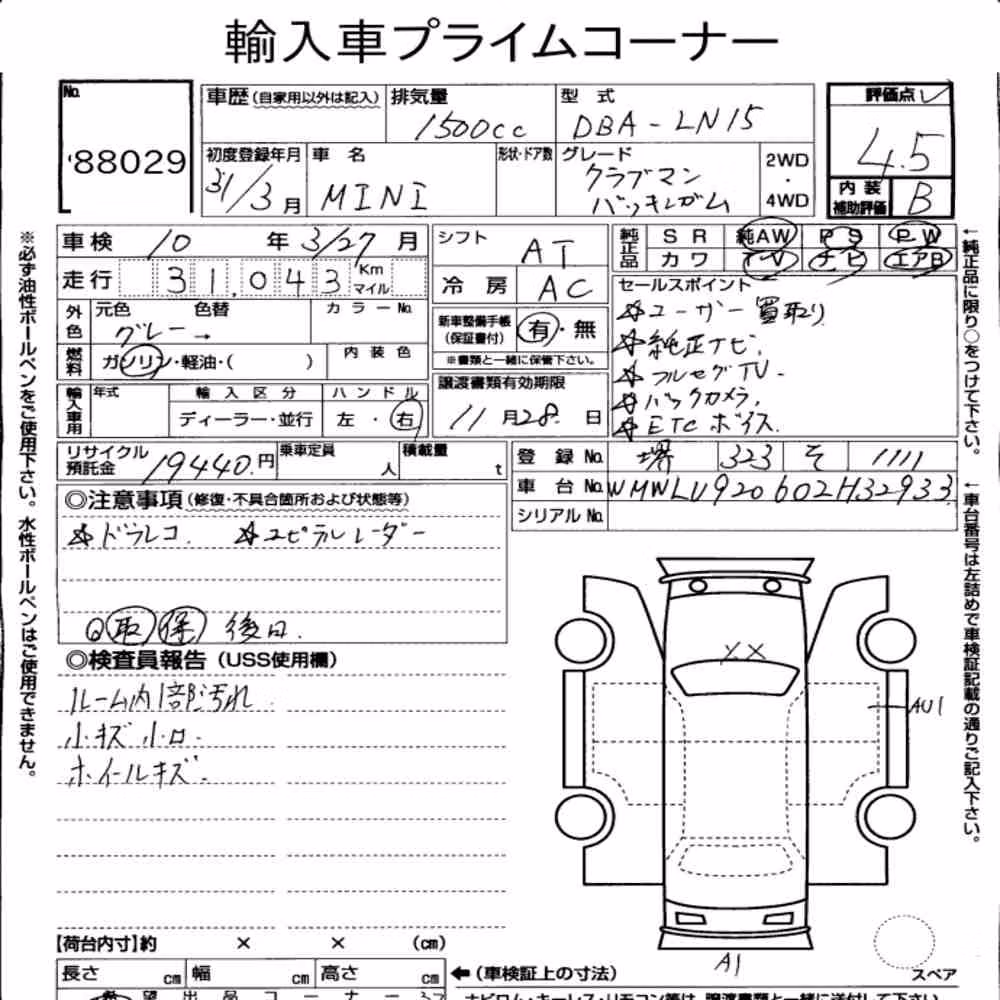 輸入車プライムコーナー
No.
'88029
車歴 (自家用以外は記入)
排気量
1500cc
型式
DBA-LN15
評価点
4.5
初度登録年月
31/3月
車名
MINI
形状・ドア数
グレード
クラブマン
バッキンガム
2WD
・
4WD
内装
補助評価
B
車検 10年3/27月
走行 31,043 Km
マイル
外色
元色
色替
カラーNo.
グレー→
燃料
ガソリン・軽油・( )
内装色
輸入車用
年式
輸入区分
ハンドル
ディーラー・並行
左・右
シフト
AT
冷房
AC
新車整備手帳
(保証書付)
有・無
※書類と一緒に保管下さい。
譲渡書類有効期限
11月28日
純正品
SR 純AW PS PW
カワ TV ナビ エアB
セールスポイント
☆ユーザー買取り
☆純正ナビ.
☆フルセグTV.
☆バックカメラ.
☆ETCボイス.
リサイクル
預託金
19440円
乗車定員
人
積載量
t
登録No. 堺 323 そ 1111
車台No. WMWLV920602H32933
シリアルNo.
◎注意事項 (修復・不具合箇所および状態等)
☆ドラレコ. ☆ユピテルレーダー
取 保 後日.
◎検査員報告 (USS使用欄)
ルーム内1部汚れ
小キズ小凹.
ホイールキズ.
XX
AU1
A1
スペア
【荷台内寸】約 × × (cm)
長さ cm 幅 cm 高さ cm
←(車検証上の寸法)
※必ず油性ボールペンをご使用下さい。水性ボールペンはご使用できません。
←純正品に限り○をつけて下さい。
←車台番号は左詰めで車検証記載の通りご記入下さい。